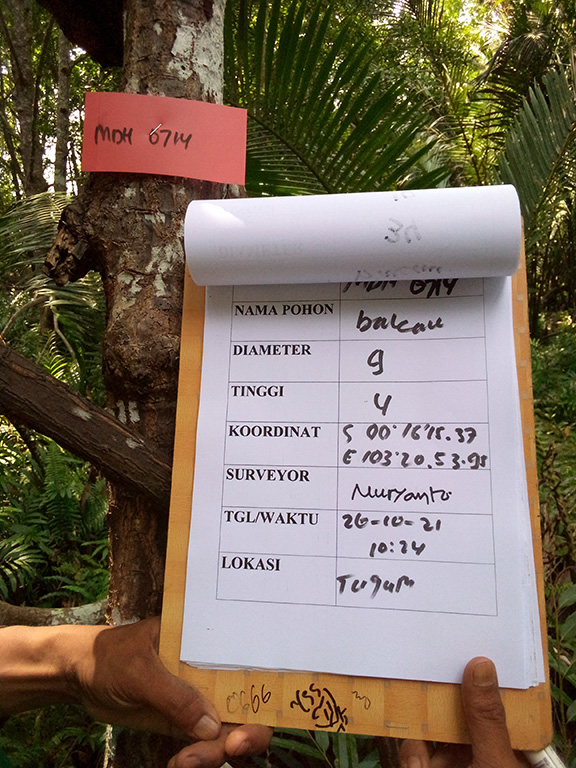 MDH 6714
MDH 6714
NAMA POHON bakau
DIAMETER 9
TINGGI 4
KOORDINAT S 00°16'15.37
E 103°20.53.95
SURVEYOR Nuryanto
TGL/WAKTU 26-10-21
10:24
LOKASI
0666